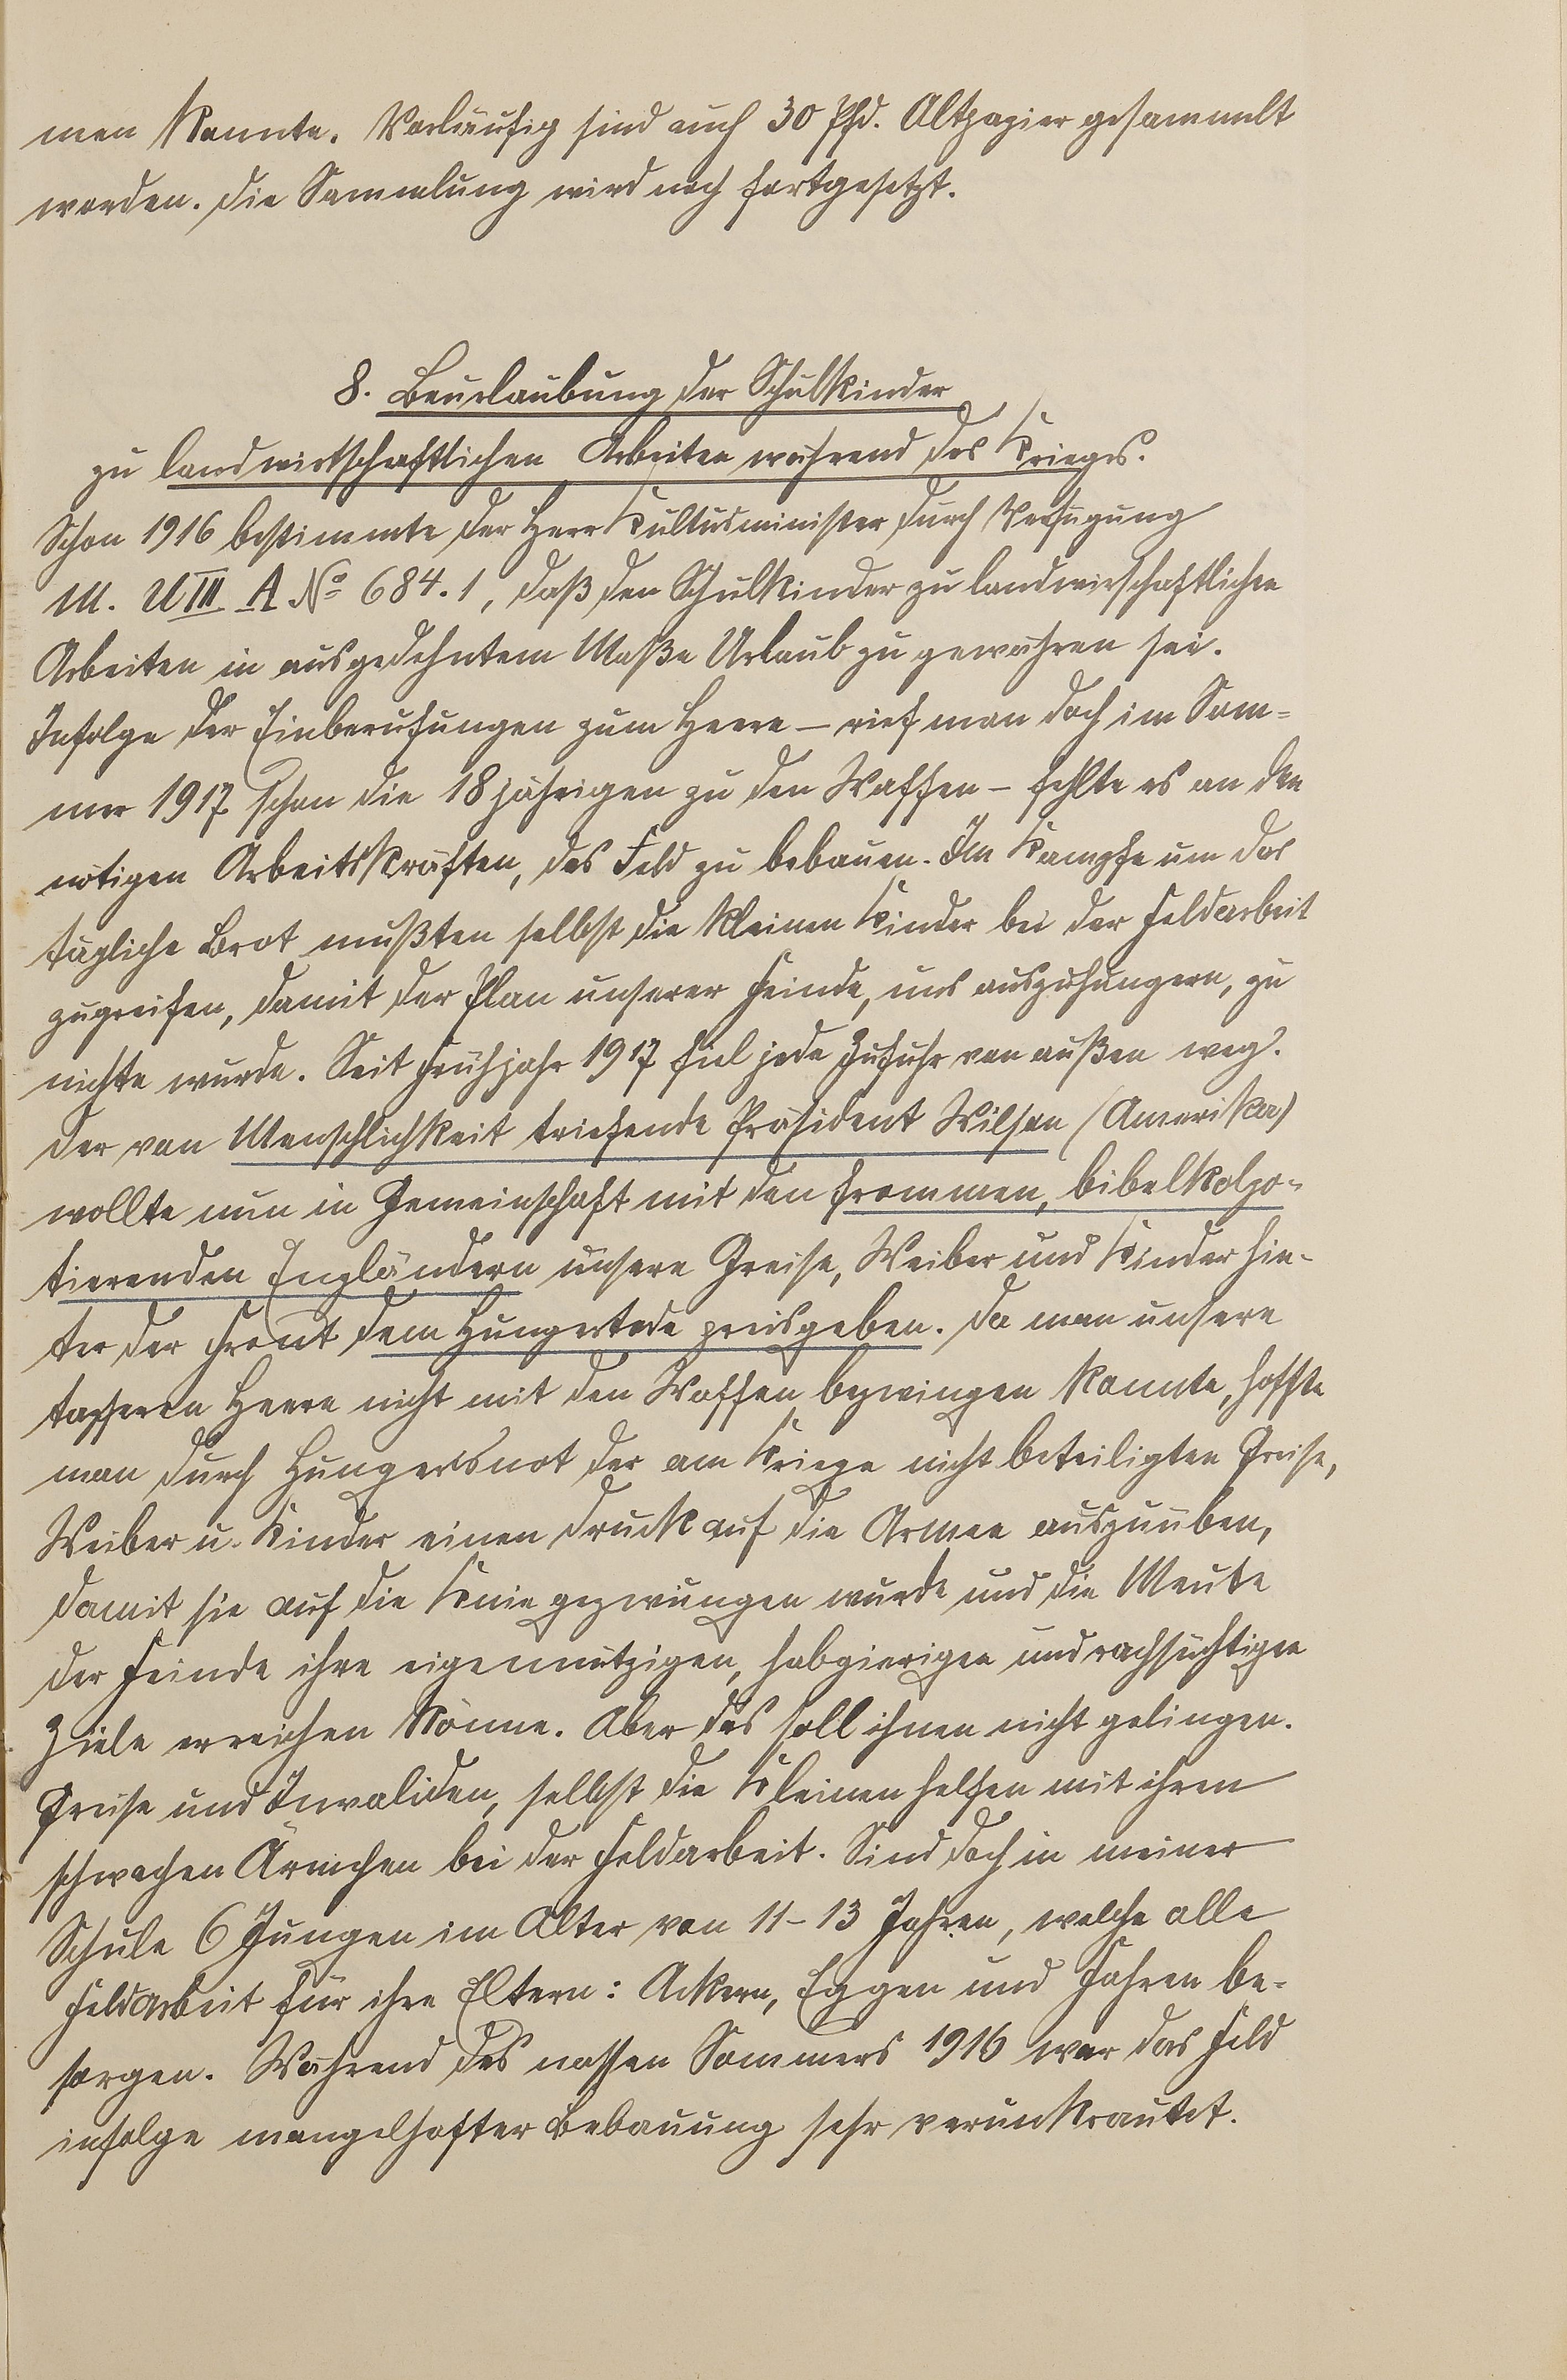 men konnte. Vorläufig sind auch 30 Pfd. Altpapier gesammelt
worden. Die Sammlung wird noch fortgesetzt.
8. Beurlaubung der Schulkinder
zu landwirtschaftlichen Arbeiten während des Krieges.
Schon 1916 bestimmte der Herr Kultusminister durch Verfügung
M. U III A No 684.1, daß den Schulkinder zu landwirschaftlichen
Arbeiten in ausgedehntem Maße Urlaub zu gewähren sei.
Infolge der Einberufungen zum Heere – rief man doch im Som=
mer 1917 schon die 18 jährigen zu den Waffen – fehlte es an den
nötigen Arbeitskräften, das Feld zu bebauen. Im Kampfe um das
tägliche Brot mußten selbst die kleinen Kinder bei der Feldarbeit
zugreifen, damit der Plan unserer Feinde, uns auszuhungern, zu
nichte wurde. Seit Frühjahr 1917 fiel jede Zufuhr von außen weg.
Der von Menschlichkeit triefende Präsident Wilson (Amerika)
wollte nun in Gemeinschaft mit den frommen, bibelkolpo=
tierenden Engländern unsere Greise, Weiber und Kinder hin-
ter der Front dem Hungertode preisgeben. Da man unsere
tapferen Heere nicht mit den Waffen bezwingen konnte, hoffte
man durch Hungersnot der am Kriege nicht beteiligten Greise,
Weiber u. Kinder einen Druck auf die Armee auszuüben,
damit sie auf die Knie gezwungen wurde und die Meute
der Feinde ihre eigennützigen, habgierigen und rachsüchtigen
Ziele erreichen könne. Aber das soll ihnen nicht gelingen.
Greise und Invaliden, selbst die Kleinen helfen mit ihren
schwachen Ärmchen bei der Feldarbeit. Sind doch in meiner
Schule 6 Jungen im Alter von 11–13 Jahren, welche alle
Feldarbeit für ihre Eltern: Ackern, Eggen und Fahren be-
sorgen. Während des nassen Sommers 1916 war das Feld
infolge mangelhafter Bebauung sehr verunkrautet.